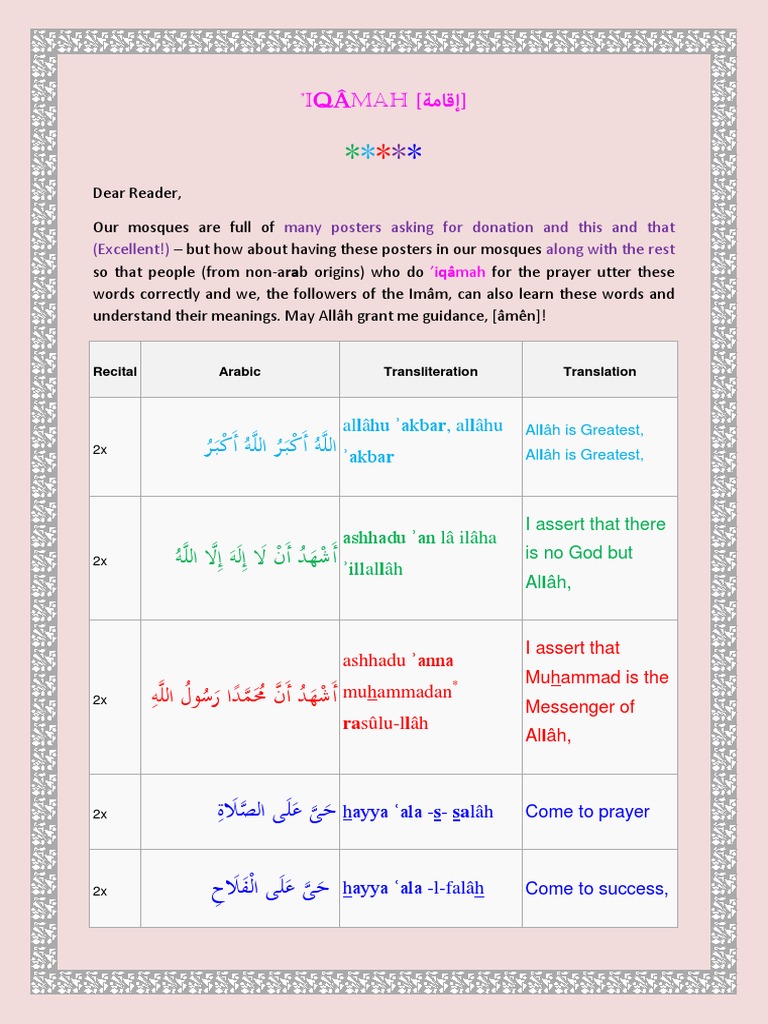 ʾIQÂMAH [إقامة]
*****
Dear Reader,
Our mosques are full of many posters asking for donation and this and that
(Excellent!) – but how about having these posters in our mosques along with the rest
so that people (from non-arab origins) who do ʾiqâmah for the prayer utter these
words correctly and we, the followers of the Imâm, can also learn these words and
understand their meanings. May Allâh grant me guidance, [âmên]!
Recital Arabic Transliteration Translation
2x
اللَّهُ أَكْبَرُ اللَّهُ أَكْبَرُ
allâhu ʾakbar, allâhu
ʾakbar
Allâh is Greatest,
Allâh is Greatest,
2x
أَشْهَدُ أَنْ لَا إِلَهَ إِلَّا اللَّهُ
ashhadu ʾan lâ ilâha
ʾillallâh
I assert that there
is no God but
Allâh,
2x
أَشْهَدُ أَنَّ مُحَمَّدًا رَسُولُ اللَّهِ
ashhadu ʾanna
muhammadan*
rasûlu-llâh
I assert that
Muhammad is the
Messenger of
Allâh,
2x
حَىَّ عَلَى الصَّلَاةِ
hayya ʿala -s- salâh
Come to prayer
2x
حَىَّ عَلَى الْفَلَاحِ
hayya ʿala -l-falâh
Come to success,